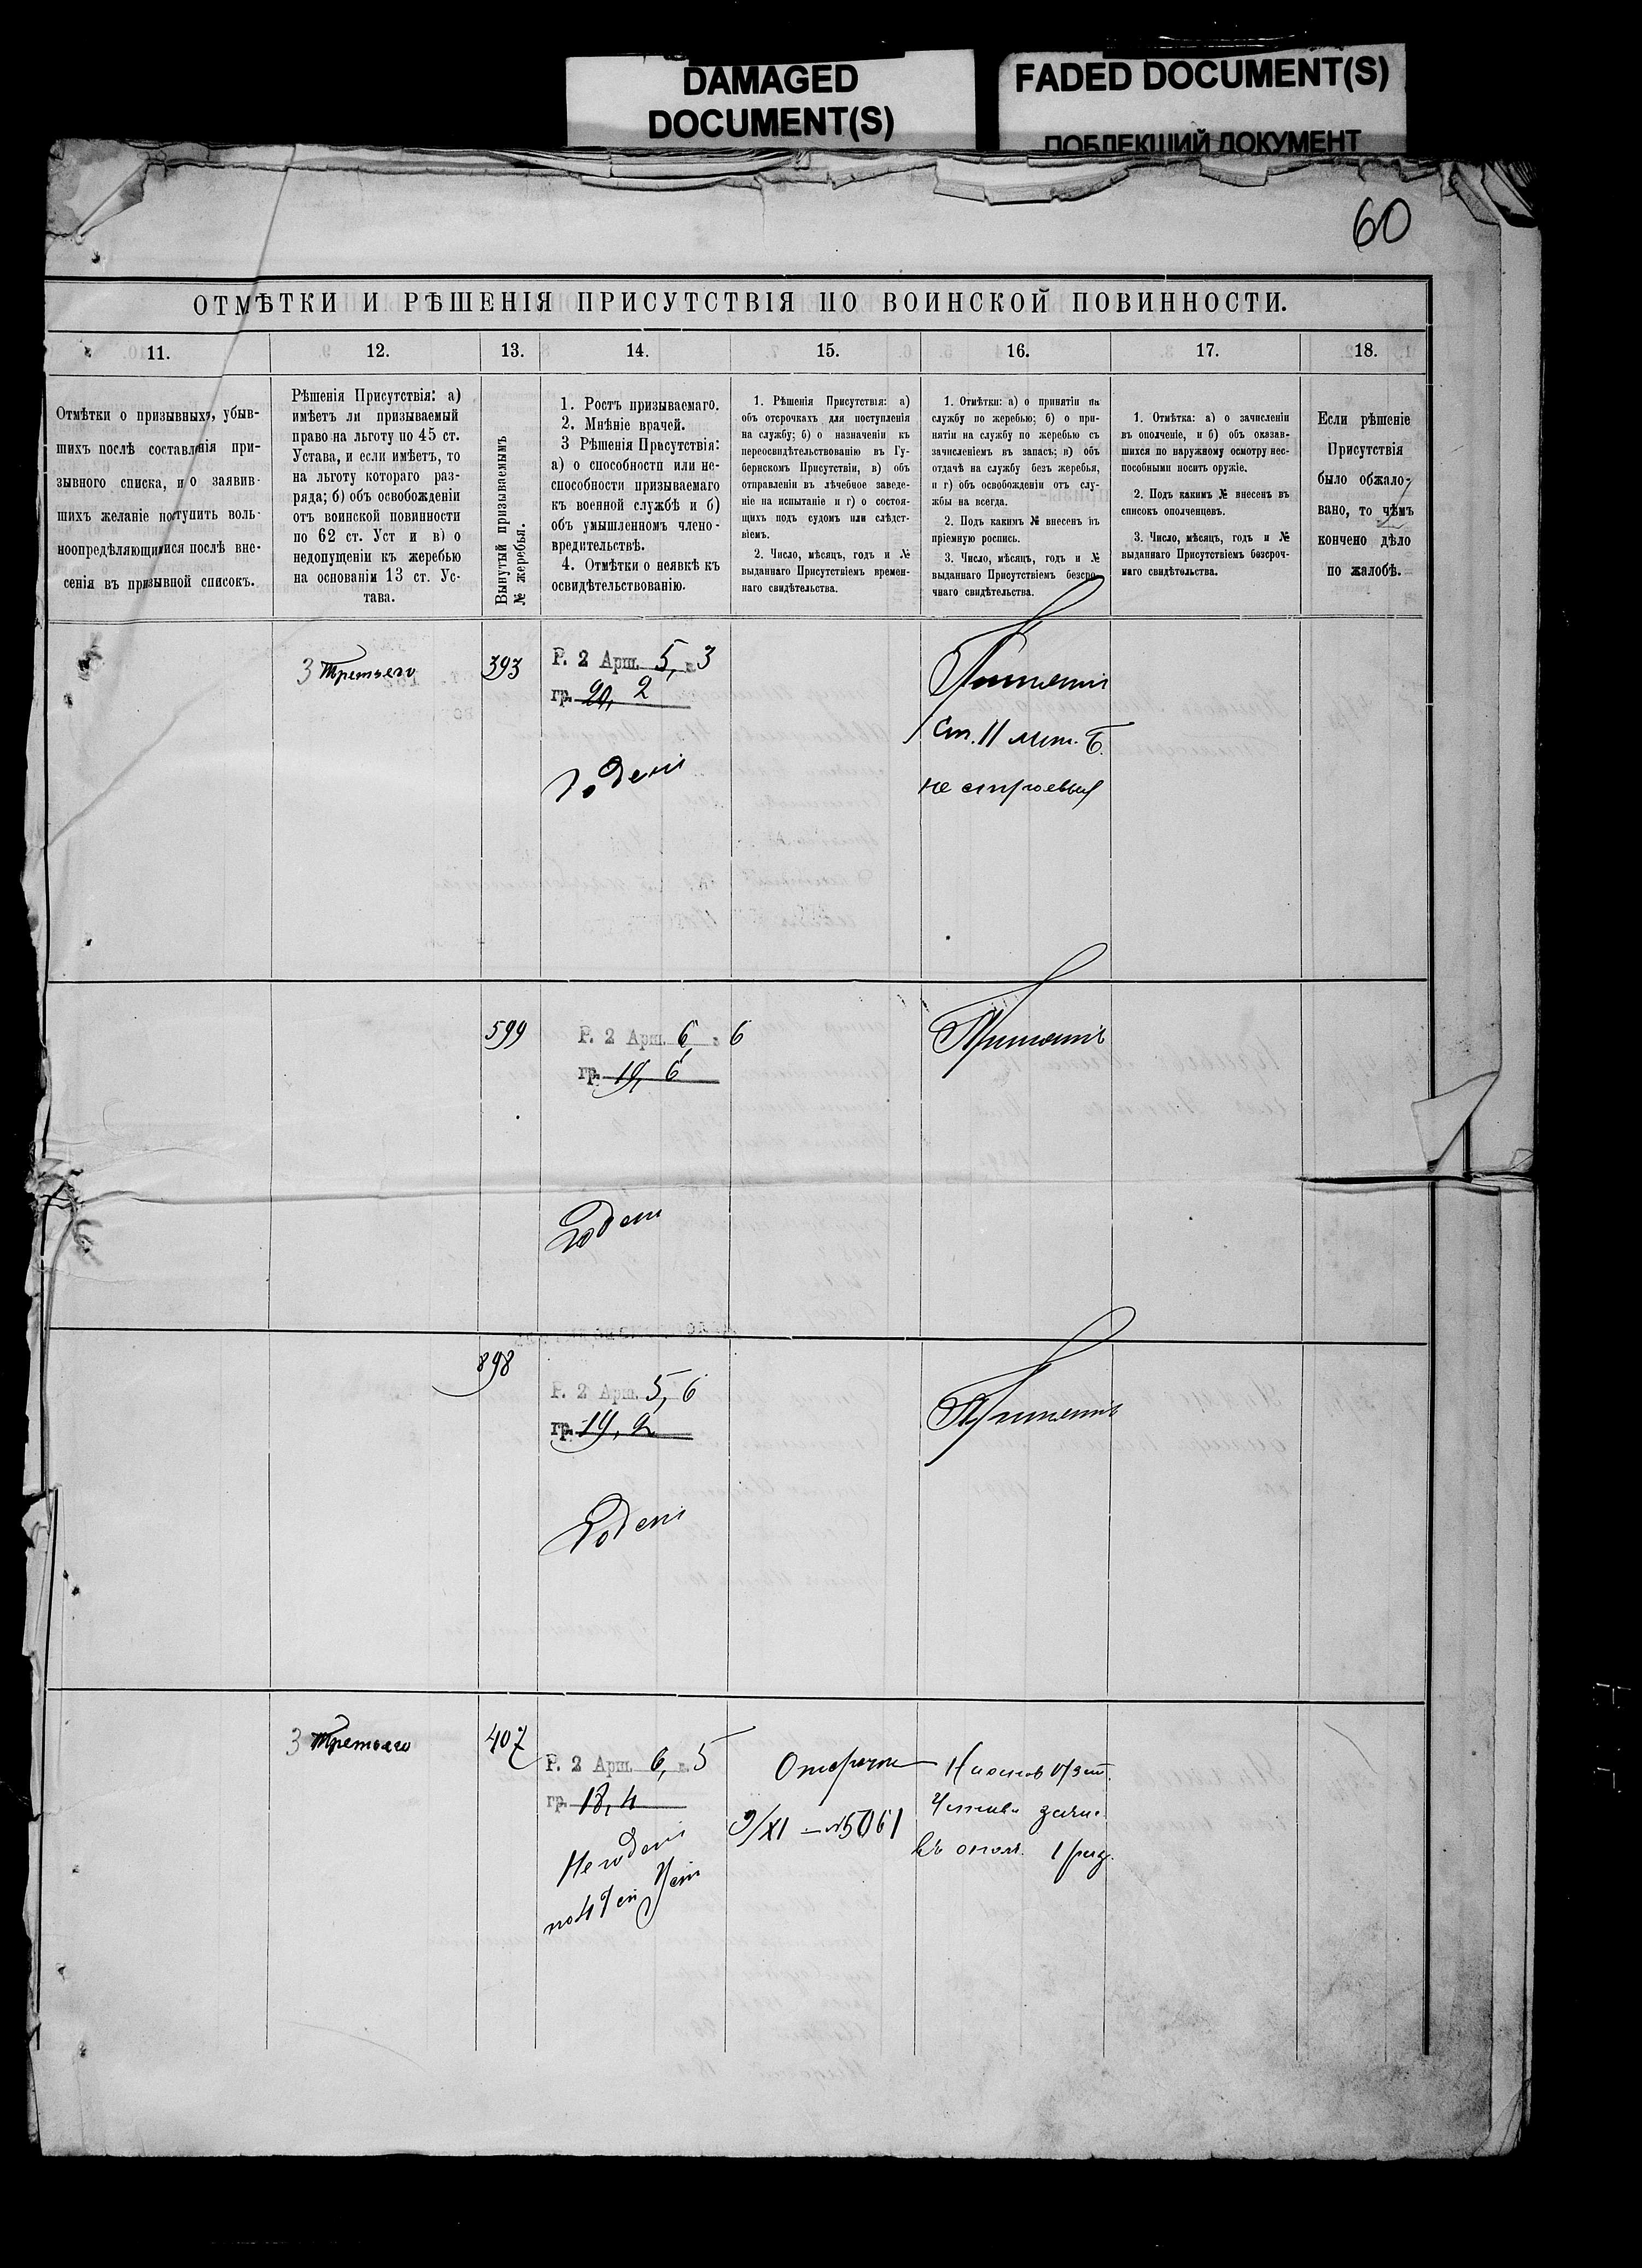 DAMAGED
DOCUMENT(S)
FADED DOCUMENT(S)
ПОБЛЕКШИЙ ДОКУМЕНТ
60
ОТМѢТКИ И РѢШЕНІЯ ПРИСУТСТВІЯ ПО ВОИНСКОЙ ПОВИННОСТИ.
11.
12.
13.
14.
15.
16.
17.
18.
Отмѣтки о призывныхъ, убыв-
шихъ послѣ составленія при-
зывного списка, и о заявив-
шихъ желаніе поступить воль-
ноопредѣляющимися послѣ вне-
сенія въ призывной списокъ.
Рѣшенія Присутствія: а)
имѣетъ ли призываемый
право на льготу по 45 ст.
Устава, и если имѣетъ, то
на льготу котораго раз-
ряда; б) объ освобожденіи
отъ воинской повинности
по 62 ст. Уст и в) о
недопущеніи къ жеребью
на основаніи 13 ст. Ус-
тава.
Вынутый призываемымъ
№ жеребья.
1. Ростъ призываемаго.
2. Мнѣніе врачей.
3 Рѣшенія Присутствія:
а) о способности или не-
способности призываемаго
къ военной службѣ и б)
объ умышленномъ члено-
вредительствѣ.
4. Отмѣтки о неявкѣ къ
освидѣтельствованію.
1. Рѣшенія Присутствія: а)
объ отсрочкахъ для поступленія
на службу; б) о назначеніи къ
переосвидѣтельствованію въ Гу-
бернскомъ Присутствіи, в) объ
отправленіи въ лѣчебное заведе-
ніе на испытаніе и г) о состоя-
щихъ подъ судомъ или слѣдст-
віемъ.
2. Число, мѣсяцъ, годъ и №
выданнаго Присутствіемъ времен-
наго свидѣтельства.
1. Отмѣтки: а) о принятіи на
службу по жеребью; б) о при-
нятіи на службу по жеребью съ
зачисленіемъ въ запасъ; в) объ
отдачѣ на службу безъ жеребья,
и г) объ освобожденіи отъ слу-
жбы на всегда.
2. Подъ какимъ № внесенъ въ
пріемную роспись.
3. Число, мѣсяцъ, годъ и №
выданнаго Присутствіемъ безсро-
чнаго свидѣтельства.
1. Отмѣтка: а) о зачисленіи
въ ополченіе, и б) объ оказав-
шихся по наружному осмотру нес-
пособными носить оружіе.
2. Подъ какимъ № внесенъ въ
списокъ ополченцевъ.
3. Число, мѣсяцъ, годъ и №
выданнаго Присутствіемъ безсроч-
наго свидѣтельства.
Если рѣшеніе
Присутствія
было обжало-
вано, то чѣмъ
кончено дѣло
по жалобѣ.
3 Третьяго
393
Р. 2 Арш. 5, 3
гр. 20, 2
Годенъ
Принятъ
ст. 11 лит. Б.
не строевый
599
Р. 2 Арш. 6, 6
гр. 19, 6
Годенъ
Принятъ
898
Р. 2 Арш. 5, 6
гр. 19, 2
Годенъ
Принятъ
3 Третьяго
407
Р. 2 Арш. 6, 5
гр. 18, 4
Негоденъ
Отсрочка
9/XI — №5061
въ опол. 1 разр.